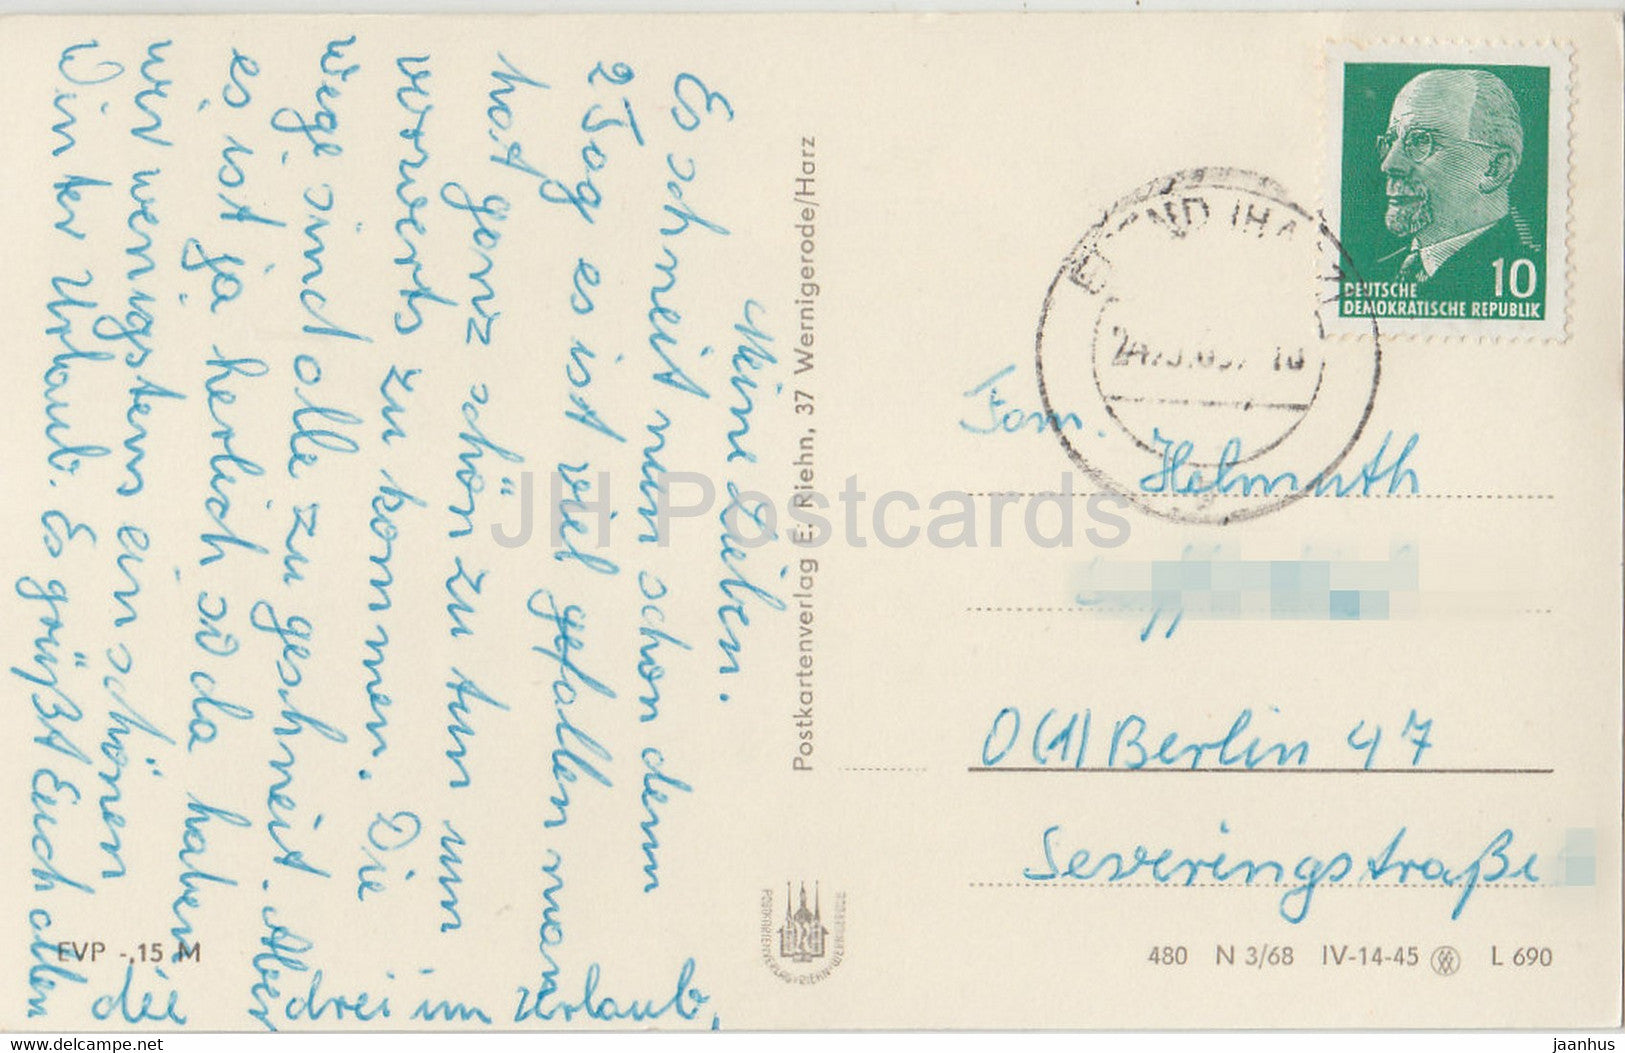 Meine Lieben.
Es schneit nun schon dem
2 Tag es ist viel gefallen man
hat ganz schön zu tun um
vorwerts zu kommen. Die
Wege sind alle zu geschneit. Aber
es ist ja herlich so da haben
wir wenigstens ein schönen
Winter Urlaub. Es grüßt Euch allen
die drei im Urlaub.
EVP -,15 M
Postkartenverlag E. Riehn, 37 Wernigerode/Harz
POSTKARTENVERLAG RIEHN WERNIGERODE
10
DEUTSCHE
DEMOKRATISCHE REPUBLIK
Fam.
Helmuth
O(1) Berlin 47
Severingstraße
480 N 3/68 IV-14-45 L 690
JH Postcards
www.delcampe.net
jaanhus